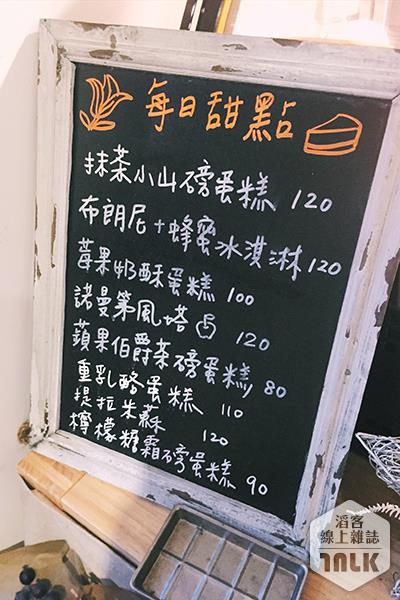 每日甜點
抹茶小山磅蛋糕 120
布朗尼+蜂蜜冰淇淋 120
莓果奶酥蛋糕 100
諾曼第風塔 120
蘋果伯爵茶磅蛋糕 80
重乳酪蛋糕 110
提拉米蘇 120
檸檬糖霜磅蛋糕 90
滔客
線上雜誌
TALK